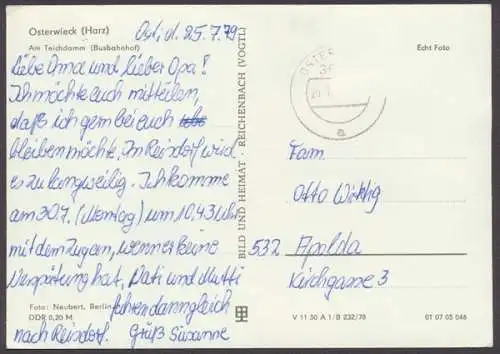 Osterwieck (Harz)
Am Teichdamm (Busbahnhof)
d. 25.7.79
Liebe Oma und lieber Opa!
Ich möchte Euch mitteilen,
daß ich gern bei euch
bleiben möchte. Im Reisdorf wird
es zu langweilig. Ich komme
am 30.7. (Montag) um 10.43 Uhr
mit dem Zug an, wenn er keine
Verspätung hat. Vati und Mutti
fahren dann gleich
nach Reisdorf. Grüß Susanne
Foto: Neubert, Berlin
DDR 0,20 M
BILD UND HEIMAT · REICHENBACH (VOGTL)
Echt Foto
OSTER
a
Fam.
Otto Wirktig
532 Apolda
Kirchgasse 3
V 11 50 A 1/B 232/78
01 07 05 046